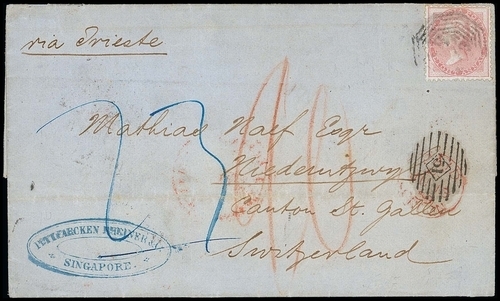 via Trieste
Mathias Naef Esqr
Niederutzwyl
Canton St. Gallen
Switzerland
23
PUTTFARCKEN RHEINER & Co.
SINGAPORE.